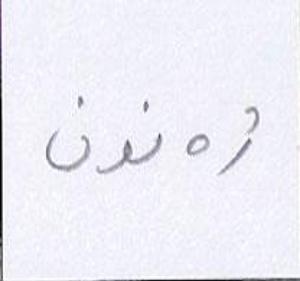 زە نون